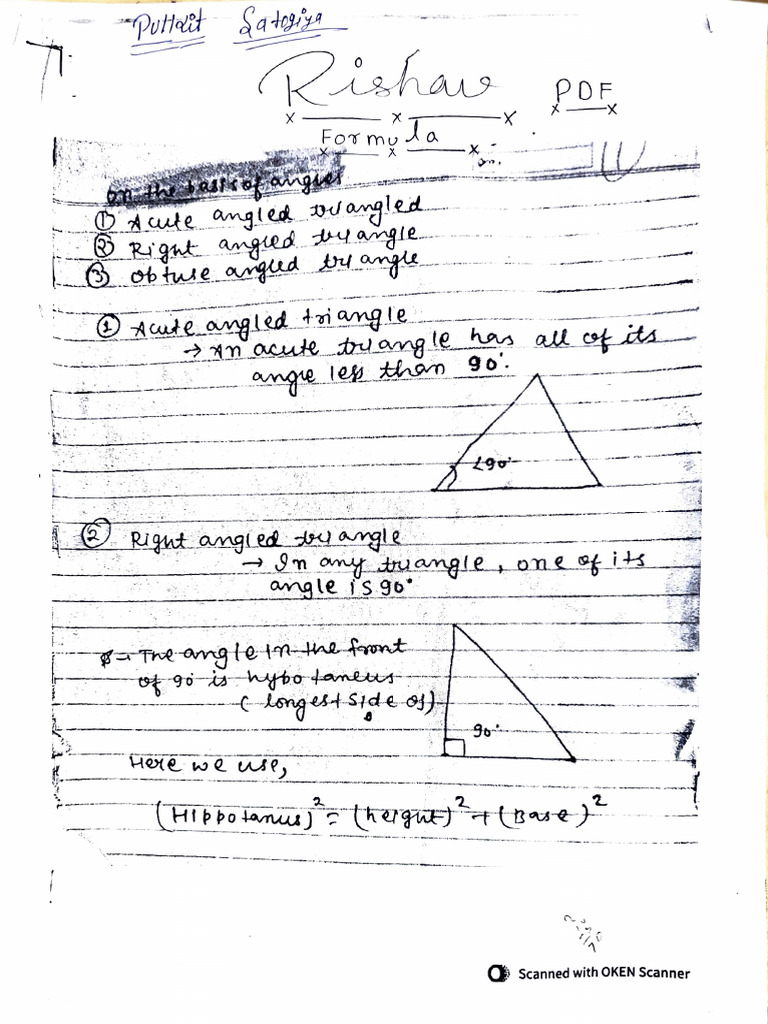 Rishav PDF
Formula
on the basis of angles
① Acute angled triangled
② Right angled triangle
③ obtuse angled triangle
① Acute angled triangle
→ An acute triangle has all of its
angle less than 90°.
∠90°
② Right angled triangle
→ In any triangle, one of its
angle is 90°
→ The angle in the front
of 90 is hybotaneus
( longest side of)
90°
Here we use,
(Hippotanus)² = (height)² + (Base)²
Scanned with OKEN Scanner